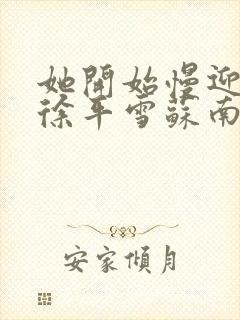 她開始慢迎
徐平雪蘇南
安家傾月